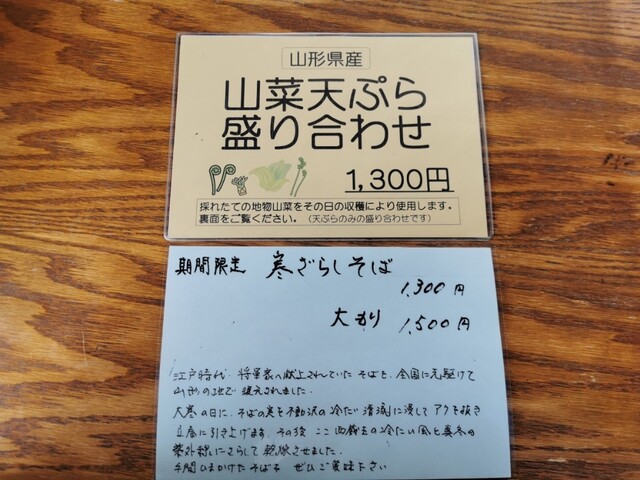 山形県産
山菜天ぷら
盛り合わせ
1,300円
採れたての地物山菜をその日の収穫により使用します。
裏面をご覧ください。（天ぷらのみの盛り合わせです）
期間限定 寒ざらしそば
1,300円
大もり 1,500円
江戸時代、将軍家へ献上されていたそばを、全国に先駆けて
山形の地で復元されました。
大寒の日に、そばの実を不動沢の冷たい清流に浸してアクを抜き
立春に引き上げます。その後、ここ西蔵王の冷たい風と真冬の
紫外線にさらして乾燥させました。
手間ひまかけたそばを ぜひご賞味下さい